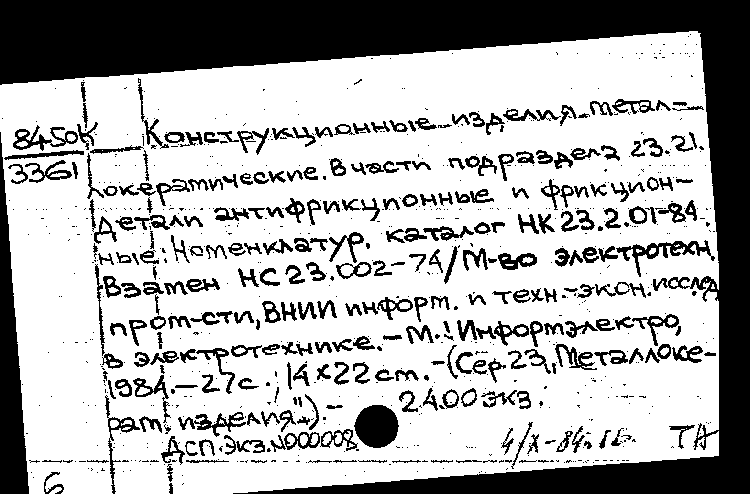 8450К Конструкционные изделия метал-
3361 локерамические. В части подраздела 23.21.
Детали антифрикционные и фрикцион-
ные: Номенклатур. каталог НК 23.2.01-84.
Взамен НС 23.002-74/М-во электротехн.
пром-сти, ВНИИ информ. и техн.-экон. исслед
в электротехнике. - М.: Информэлектро,
1984. - 27с.; 14×22 см. - (Сер. 23 „Металлоке-
рам. изделия"). - 2400 экз.
ДСП. Экз. №000008
4/X-84г. ТА
6